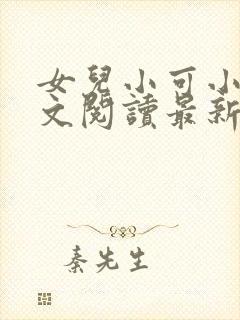 女兒小可小
文閱讀最新
秦先生